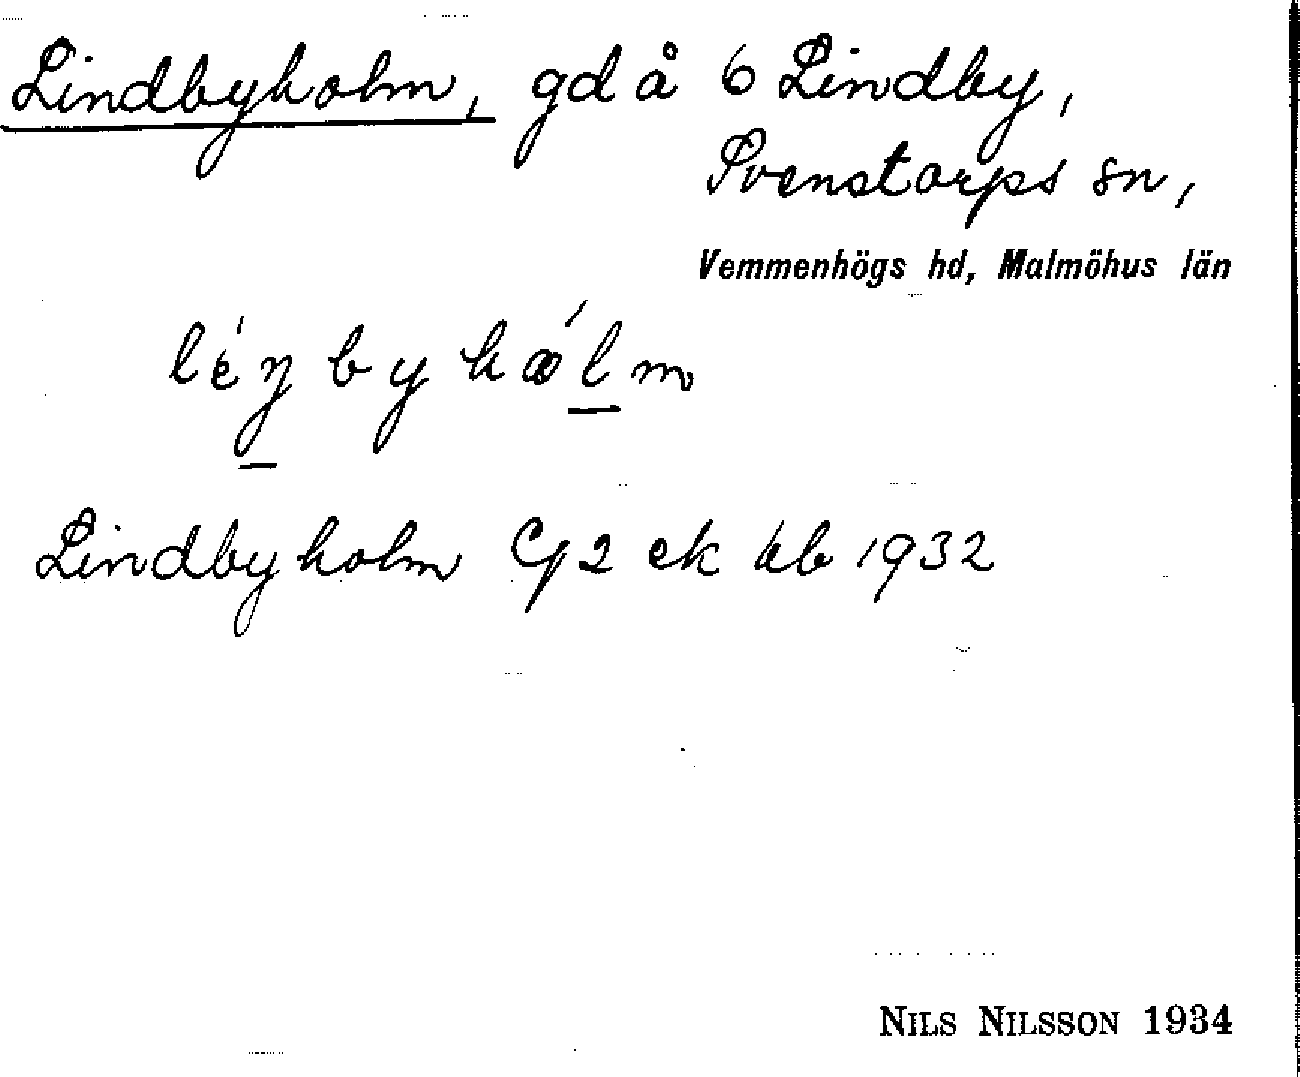 Lindbyholm, gd å 6 Lindby,
Svenstorps sn,
Vemmenhögs hd, Malmöhus län
Lindbyholm Cf 2 ek kb 1932
NILS NILSSON 1934